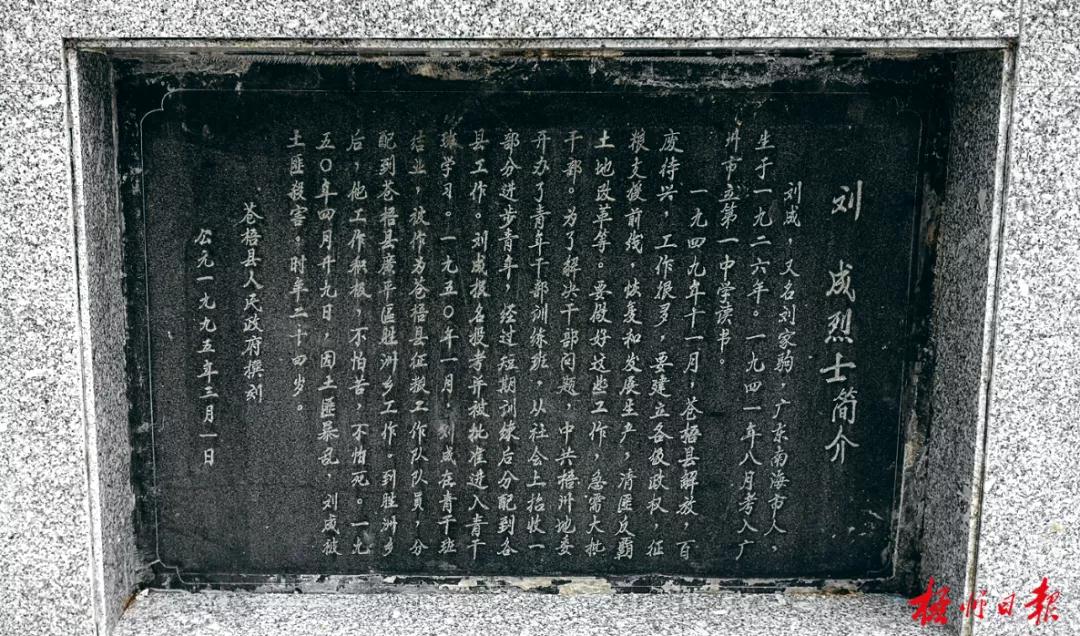 刘 成烈士简介
刘成，又名刘家驹，广东南海市人，
生于一九二六年。一九四一年八月考入广
州市立第一中学读书。
一九四九年十一月，苍梧县解放，百
废待兴，工作很多，要建立各级政权，征
粮支援前线，恢复和发展生产，清匪反霸
土地改革等。要做好这些工作，急需大批
干部。为了解决干部问题，中共梧州地委
开办了青年干部训练班，从社会上招收一
部分进步青年，经过短期训练后分配到各
县工作。刘成报名投考并被批准进入青干
班学习。一九五〇年一月，刘成在青干班
结业，被作为苍梧县征粮工作队队员，分
配到苍梧县广平区胜洲乡工作。到胜洲乡
后，他工作积极，不怕苦，不怕死。一九
五〇年四月廾九日，因土匪暴乱，刘成被
土匪杀害，时年二十四岁。
苍梧县人民政府撰刻
公元一九九五年三月一日
梧州日报